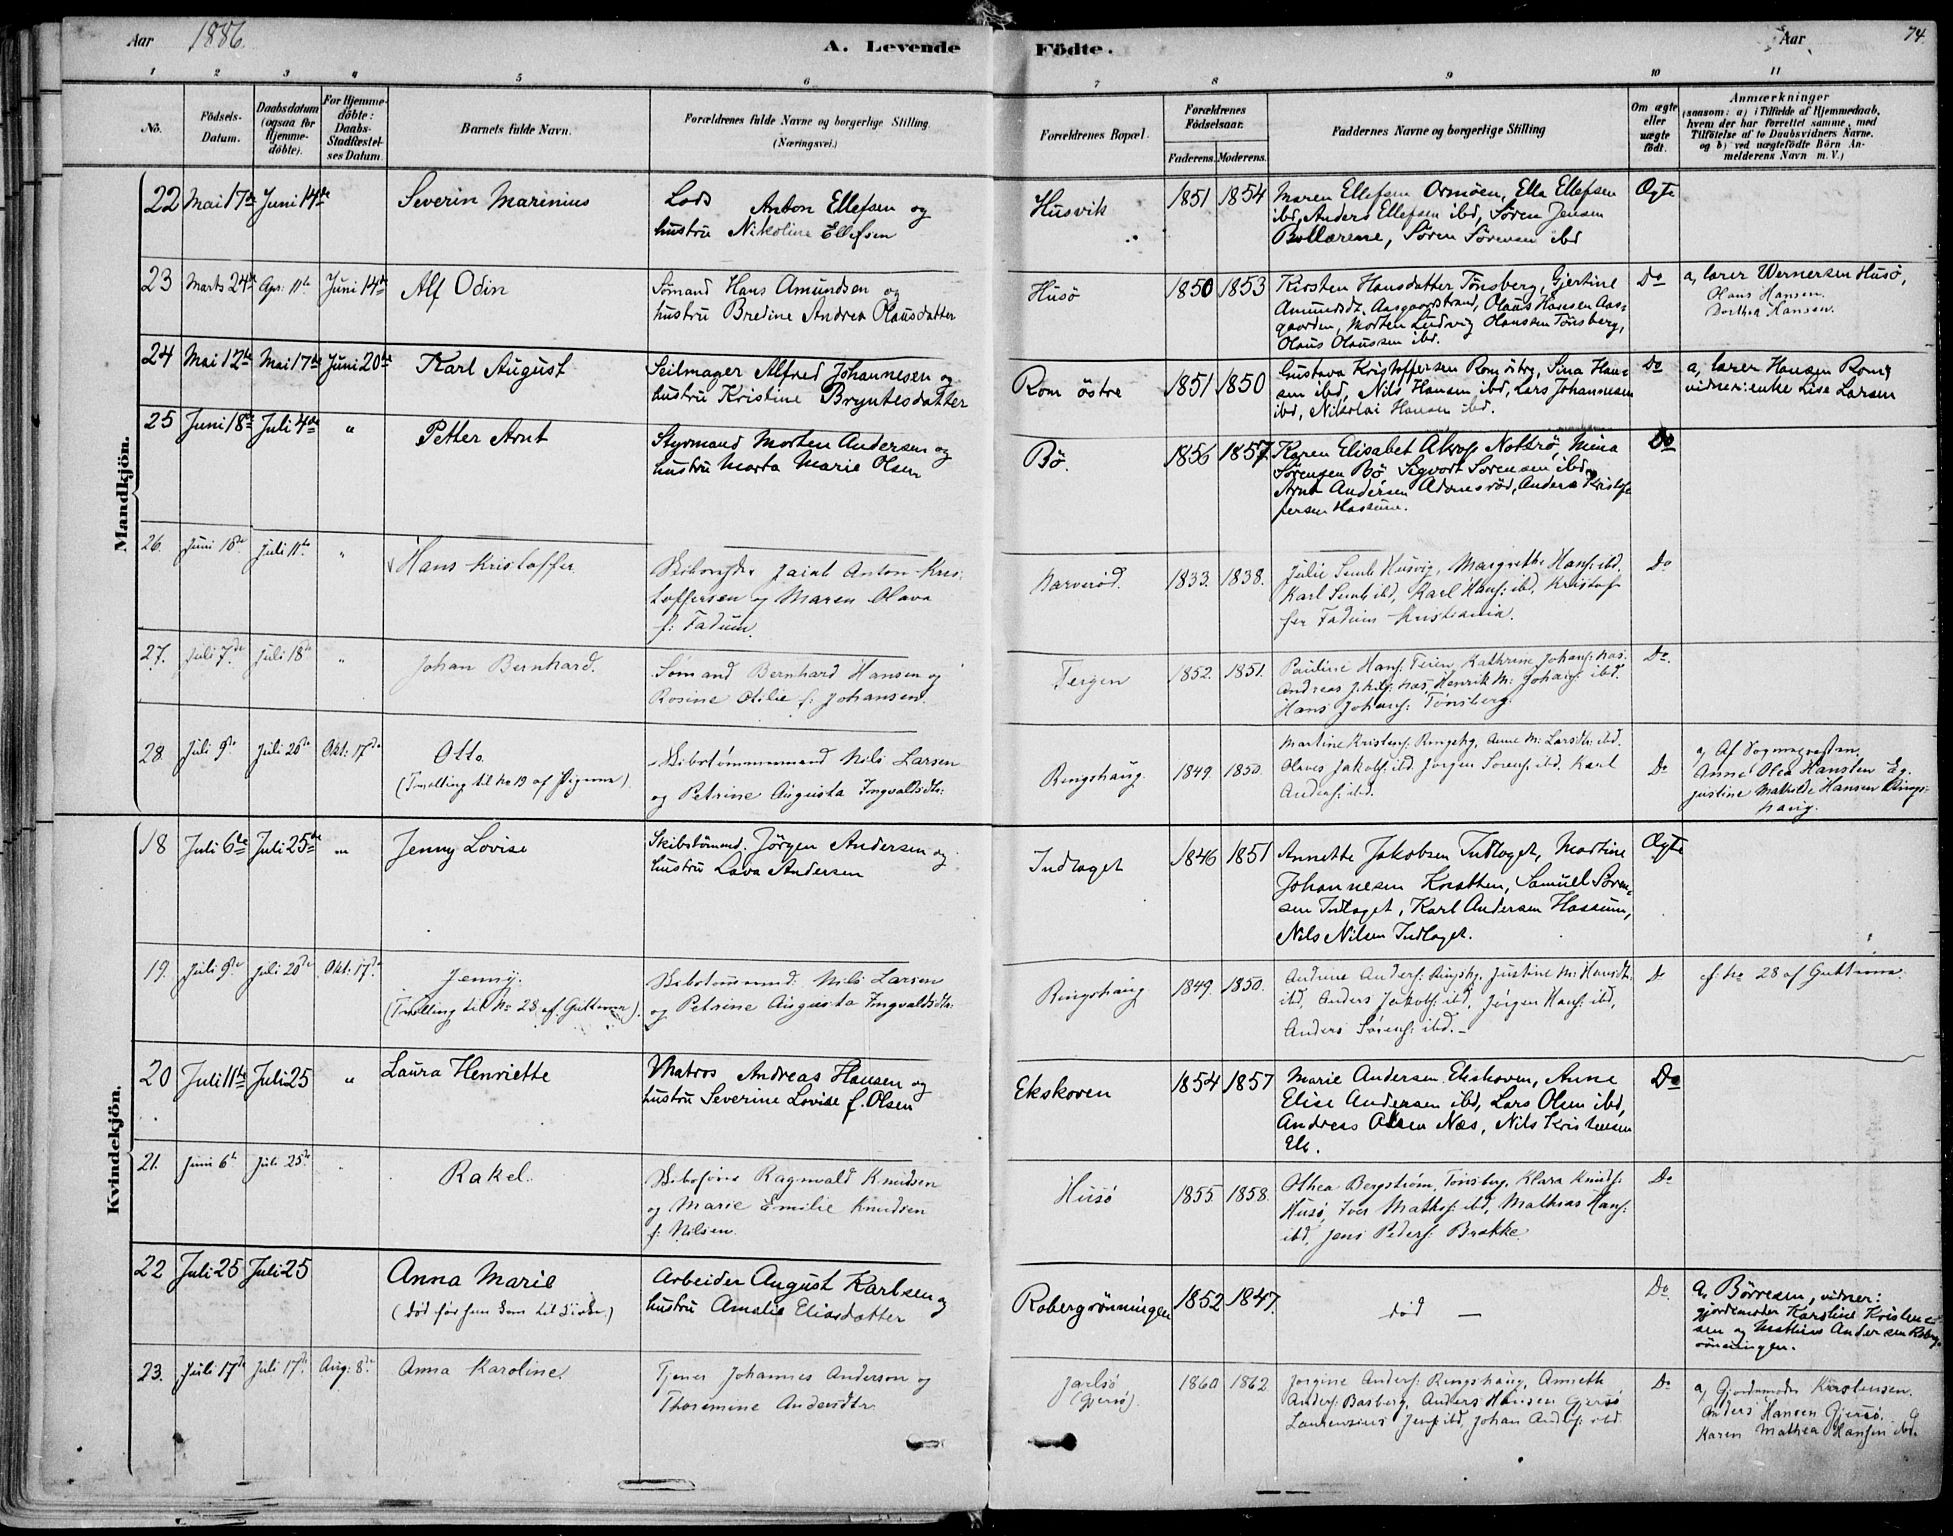 Aar 1886.
A. Levende Födte.
Aar
74.
1 2 3 4 5 6 7 8 9 10 11
No.
Födsels-Datum.
Daabsdatum (ogsaa for Hjemme-döbte).
For Hjemme-döbte: Daabs-Stadfæstel-ses Datum.
Barnets fulde Navn.
Forældrenes fulde Navne og borgerlige Stilling.
(Næringsvei.)
Forældrenes Bopæl.
Forældrenes Födselsaar.
Faderens. Moderens.
Faddernes Navne og borgerlige Stilling
Om ægte eller uægte født.
Anmærkninger
(saasom: a) i Tilfælde af Hjemmedaab,
hvem der har forrettet samme, med
Tilföielse af to Daabsvidners Navne,
og b) ved uægtefödte Börn An-
melderens Navn m. V.)
Mandkjön.
22 Mai 17de Juni 14de Severin Marinius
Lods Anton Ellefsen og
hustru Nikoline Ellefsen
Husvik 1851 1854
Maren Ellefsen Ormøen, Ella Ellefsen
ibd, Anders Ellefsen ibd, Sören Jensen
Bollærene, Sören Sörensen ibd
Ægte
23 Marts 24de Apr: 11te Juni 14de Alf Odin
Sömand Hans Amundsen og
hustru Bredine Andrea Olausdatter
Husö 1850 1853
Kirsten Hansdatter Tönsberg, Gjertine
Amundsdt. Aasgaardstrand, Olaus Hansen Aas-
gaarden, Morten Ludvig Hansen Tönsberg,
Olaus Olaussen ibd.
Do
a, lærer Wernersen Husö,
Hans Hansen.
Dorthea Hansen.
24 Mai 12te Mai 17de Juni 20de Karl August
Seilmager Alfred Johannesen og
hustru Kristine Bryntesdatter
Rom östre 1851 1850
Gustava Kristoffersen Rom östre, Sina Han-
sen ibd, Nils Hansen ibd, Lars Johannesen
ibd, Nikolai Hansen ibd.
Do
a, lærer Hansen Rom,
vidner: enke Lisa Larsen
25 Juni 18de Juli 4de " Petter Arnt
Styrmand Morten Andersen og
hustru Marta Marie Olsen
Bö. 1856 1857
Karen Elisabet Nottrö, Mina
Sörensen Bö, Sigvart Sörensen ibd,
Arnt Andersen Adamsröd, Anders Kristof-
fersen Hassum.
Do
26. Juni 18de Juli 11te " Hans Kristoffer
Anton Kris-
toffersen og Maren Olava
f: Fadum.
Narverød 1833. 1838.
Julie Semb Husvig, Margrethe Hans: ibd.
Karl Semb ibd, Karl Hans: ibd, Kristof-
fer Fadum Kristiania.
Do
27. Juli 7de Juli 18de " Johan Bernhard.
Sømand Bernhard Hansen og
Rosine Otilie f: Johansen.
Tergen 1852. 1851.
Pauline Hans: Kathrine Johans: Næs.
Andreas Næs, Henrik M: Johans: ibd.
Hans Johans: Tønsberg
Do.
28. Juli 9de Juli 20de Okt: 17de Otto.
(Tvilling til No 19 af Pigerne).
Skibstømmermand Nils Larsen
og Petrine Augusta Ingvaldsdtr:
Ringshaug 1849. 1850.
Martine Kristens: Ringshg, Anne M: Larsdtr: ibd.
Olaves Jakobs: ibd. Jørgen Sørens: ibd. Karl
Anders: ibd.
Do
a, Af Sognepresten.
Anne Olea Hansten Eg.
Justine Mathilde Hansen Rings-
haug.
Kvindekjön.
18 Juli 6te Juli 25de " Jenny Lovise
Skibstömmd. Jörgen Andersen og
hustru Lava Andersen
Indlaget 1846 1851
Annette Jakobsen Indlaget, Martine
Johannesen Knatten, Samuel Sören-
sen Indlaget, Karl Andersen Hassum,
Nils Nilsen Indlaget.
Ægte
19. Juli 9de Juli 20de Okt: 17de Jenny.
(Tvilling til No 28 af Gutterne).
Skibstømmmd: Nils Larsen
og Petrine Augusta Ingvaldsdtr:
Ringshaug 1849. 1850.
Andrine Anders: Ringshg, Justine M: Hansdtr:
ibd. Anders Jakobs: ibd, Jørgen Hans: ibd,
Anders Sørens: ibd.
Do
cf: No 28 af Gutterne.
20 Juli 11te Juli 25 " Laura Henriette
Matros Andreas Hansen og
hustru Severine Lovise f. Olsen
Ekskoven 1854 1857
Marie Andersen Ekskoven, Anne
Elise Andersen ibd, Lars Olsen ibd,
Andreas Olsen Næs, Nils Kristensen
Ek.
Do
21. Juni 6te Juli 25de Rakel.
Skibsfører Ragnvald Knudsen
og Marie Emilie Knudsen
f: Nilsen.
Husø 1855. 1858.
Othea Bergstrøm, Tønsberg, Klara Knuds:
Husø, Iver Maths: ibd, Mathias Hans:
ibd, Jens Peders: Brække
Do
22 Juli 25 Juli 25 Anna Marie
(död før hun kom til kirke.)
Arbeider August Karlsen og
hustru Amalie Eliasdatter
Robergrönningen 1852 1847.
död —
Do
a, Börresen, vidner:
gjordemoder Karoline Kristen-
sen og Mathias Andersen Roberg-
rönningen.
23. Juli 17de Juli 17de Aug: 8de Anna Karoline.
Tjener Johannes Anderson og
Thoremine Andersdtr
Jarlsø
(Gjersø). 1860 1862
Jorgine Anders: Ringshaug, Annette
Anders: Basberg, Anders Hansen Gjersø
Laurenzius Jens: ibd, Johan Anders: ibd.
Do
a, Gjordemoder Kirstensen.
Anders Hansen Gjersø.
Karen Mathea Hansen ibd.